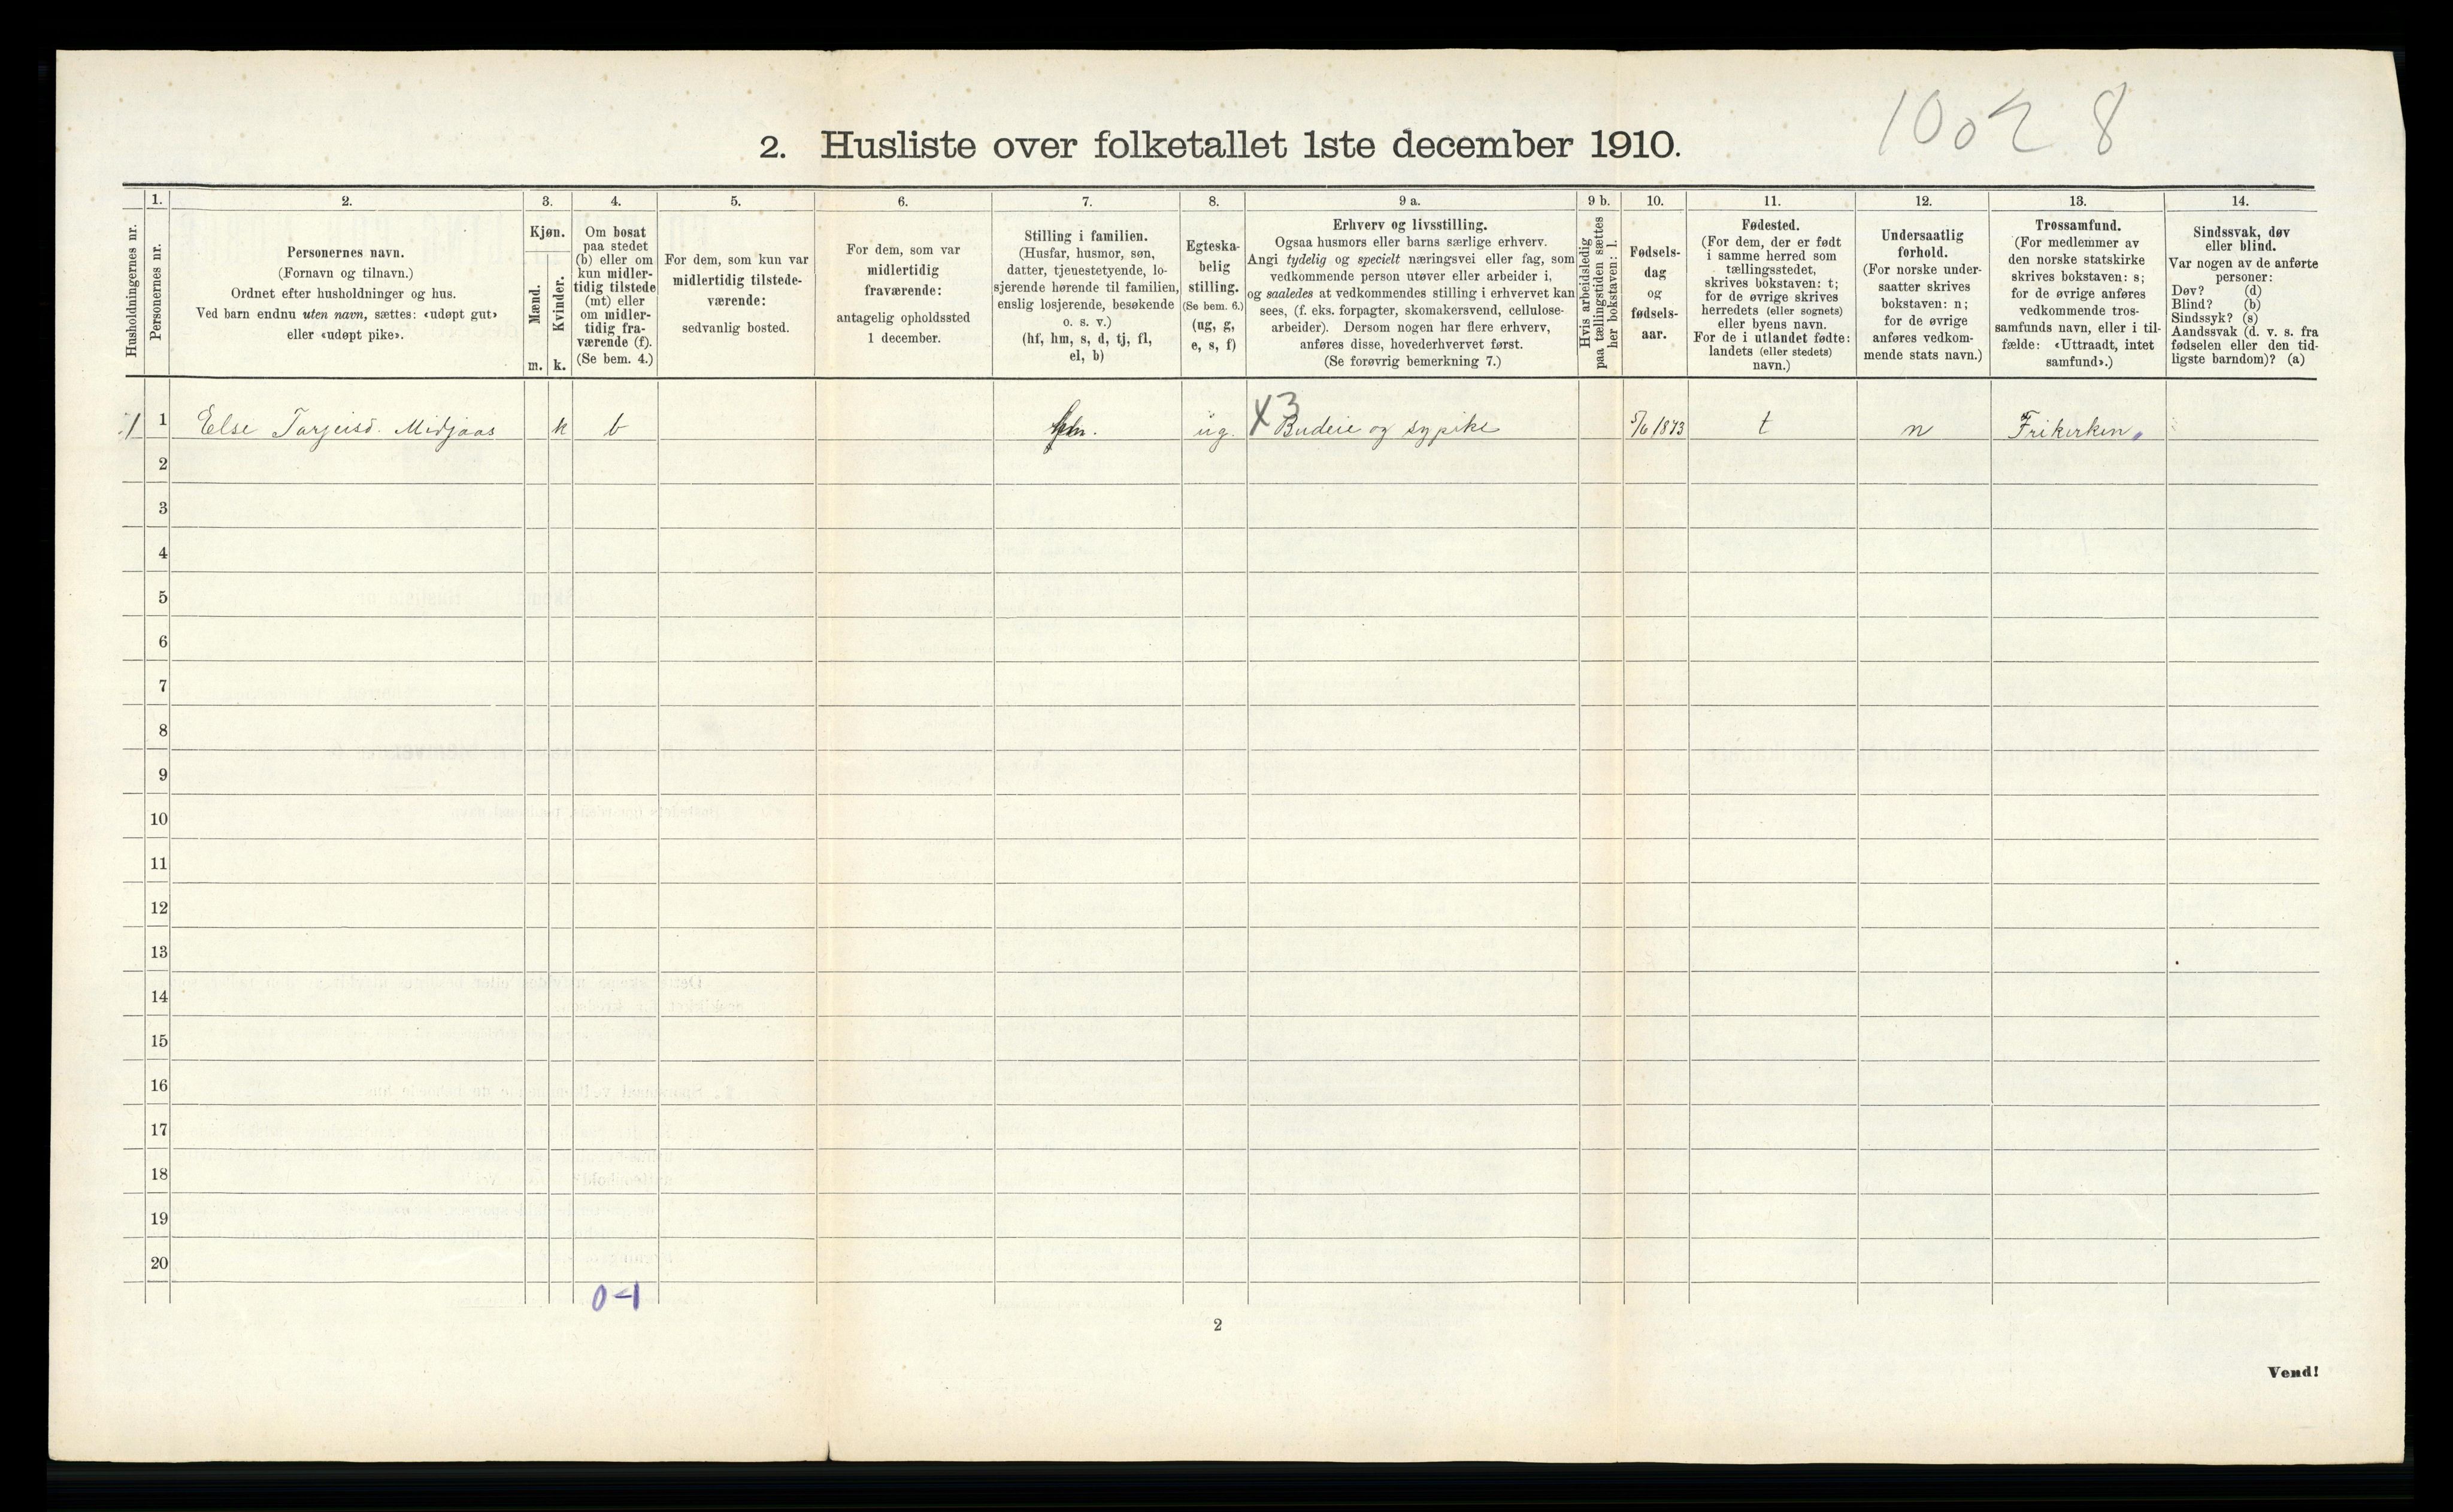 10028
2. Husliste over folketallet 1ste december 1910.
Husholdningernes nr.
1.
Personernes nr.
2.
Personernes navn.
(Fornavn og tilnavn.)
Ordnet efter husholdninger og hus.
Ved barn endnu uten navn, sættes: «udøpt gut»
eller «udøpt pike».
3.
Kjøn.
Mænd.
Kvinder.
m. k.
4.
Om bosat
paa stedet
(b) eller om
kun midler-
tidig tilstede
(mt) eller
om midler-
tidig fra-
værende (f).
(Se bem. 4.)
5.
For dem, som kun var
midlertidig tilstede-
værende:
sedvanlig bosted.
6.
For dem, som var
midlertidig
fraværende:
antagelig opholdssted
1 december.
7.
Stilling i familien.
(Husfar, husmor, søn,
datter, tjenestetyende, lo-
sjerende hørende til familien,
enslig losjerende, besøkende
o. s. v.)
(hf, hm, s, d, tj, fl,
el, b)
8.
Egteska-
belig
stilling.
(Se bem. 6.)
(ug, g,
e, s, f)
9 a.
Erhverv og livsstilling.
Ogsaa husmors eller barns særlige erhverv.
Angi tydelig og specielt næringsvei eller fag, som
vedkommende person utøver eller arbeider i,
og saaledes at vedkommendes stilling i erhvervet kan
sees, (f. eks. forpagter, skomakersvend, cellulose-
arbeider). Dersom nogen har flere erhverv,
anføres disse, hovederhvervet først.
(Se forøvrig bemerkning 7.)
9 b.
Hvis arbeidsledig
paa tællingstiden sættes
her bokstaven: l.
10.
Fødsels-
dag
og
fødsels-
aar.
11.
Fødested.
(For dem, der er født
i samme herred som
tællingsstedet,
skrives bokstaven: t;
for de øvrige skrives
herredets (eller sognets)
eller byens navn.
For de i utlandet fødte:
landets (eller stedets)
navn.)
12.
Undersaatlig
forhold.
(For norske under-
saatter skrives
bokstaven: n;
for de øvrige
anføres vedkom-
mende stats navn.)
13.
Trossamfund.
(For medlemmer av
den norske statskirke
skrives bokstaven: s;
for de øvrige anføres
vedkommende tros-
samfunds navn, eller i til-
fælde: «Uttraadt, intet
samfund».)
14.
Sindssvak, døv
eller blind.
Var nogen av de anførte
personer:
Døv? (d)
Blind? (b)
Sindssyk? (s)
Aandssvak (d. v. s. fra
fødselen eller den tid-
ligste barndom)? (a)
1 1 Else Tarjeisd. Midjaas k b ug. X3 Budeie og sypike 5/6 1873 t n Frikirken.
2
3
4
5
6
7
8
9
10
11
12
13
14
15
16
17
18
19
20
0-1
2
Vend!